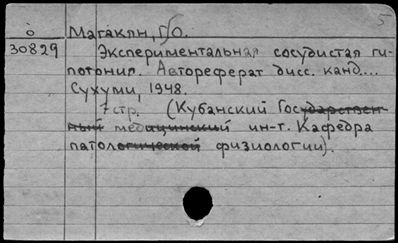 5
о Магакян, Г.О.
30829 Экспериментальная сосудистая ги-
потония. Автореферат дисс. канд....
Сухуми, 1948.
7 стр. (Кубанский Государствен-
ный медицинский ин-т. Кафедра
патологической физиологии).